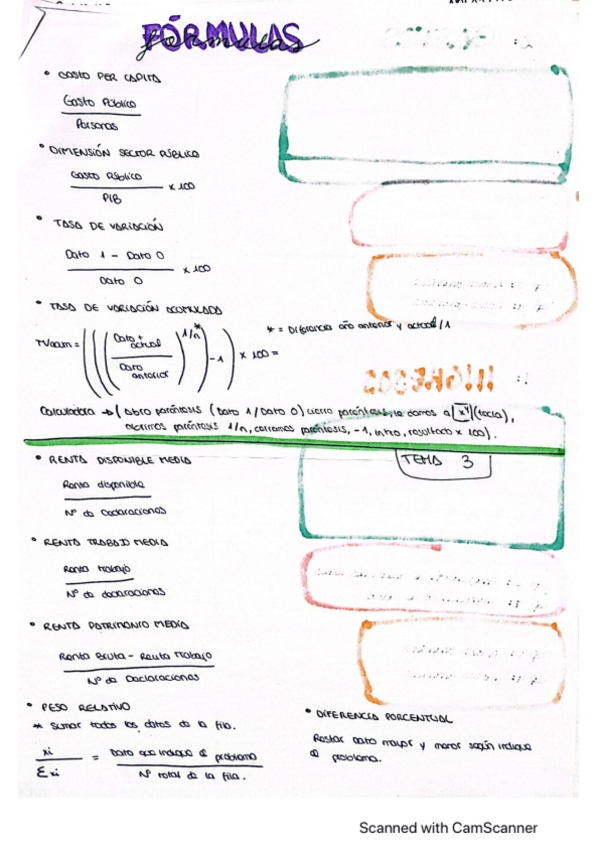 FÓRMULAS
fórmulas
• GASTO PER CAPITA
Gasto Público
Personas
• DIMENSIÓN SECTOR PÚBLICO
Gasto Público
PIB
x 100
• TASA DE VARIACIÓN
Dato 1 - Dato 0
Dato 0
x 100
• TASA DE VARIACIÓN ACUMULADA
TVacum = (((Dato + actual / Dato anterior)^1/n*) -1) x 100 =
* = Diferencia año anterior y actual / 1
INGRESOS
Calculadora → ( abro paréntesis (Dato 1 / Dato 0) cierro paréntesis, le damos a x^y (tecla),
abrimos paréntesis 1/n, cerramos paréntesis, -1, intro, resultado x 100).
TEMA 3
• RENTA DISPONIBLE MEDIA
Renta disponible
Nº de Declaraciones
• RENTA TRABAJO MEDIA
Renta trabajo
Nº de declaraciones
• RENTA PATRIMONIO MEDIA
Renta Bruta - Renta Trabajo
Nº de Declaraciones
• PESO RELATIVO
* Sumar todos los datos de la fila.
xi
Σxi
=
Dato que indique el problema
Nº total de la fila.
• DIFERENCIA PORCENTUAL
Restar dato mayor y menor según indique
el problema.
Scanned with CamScanner